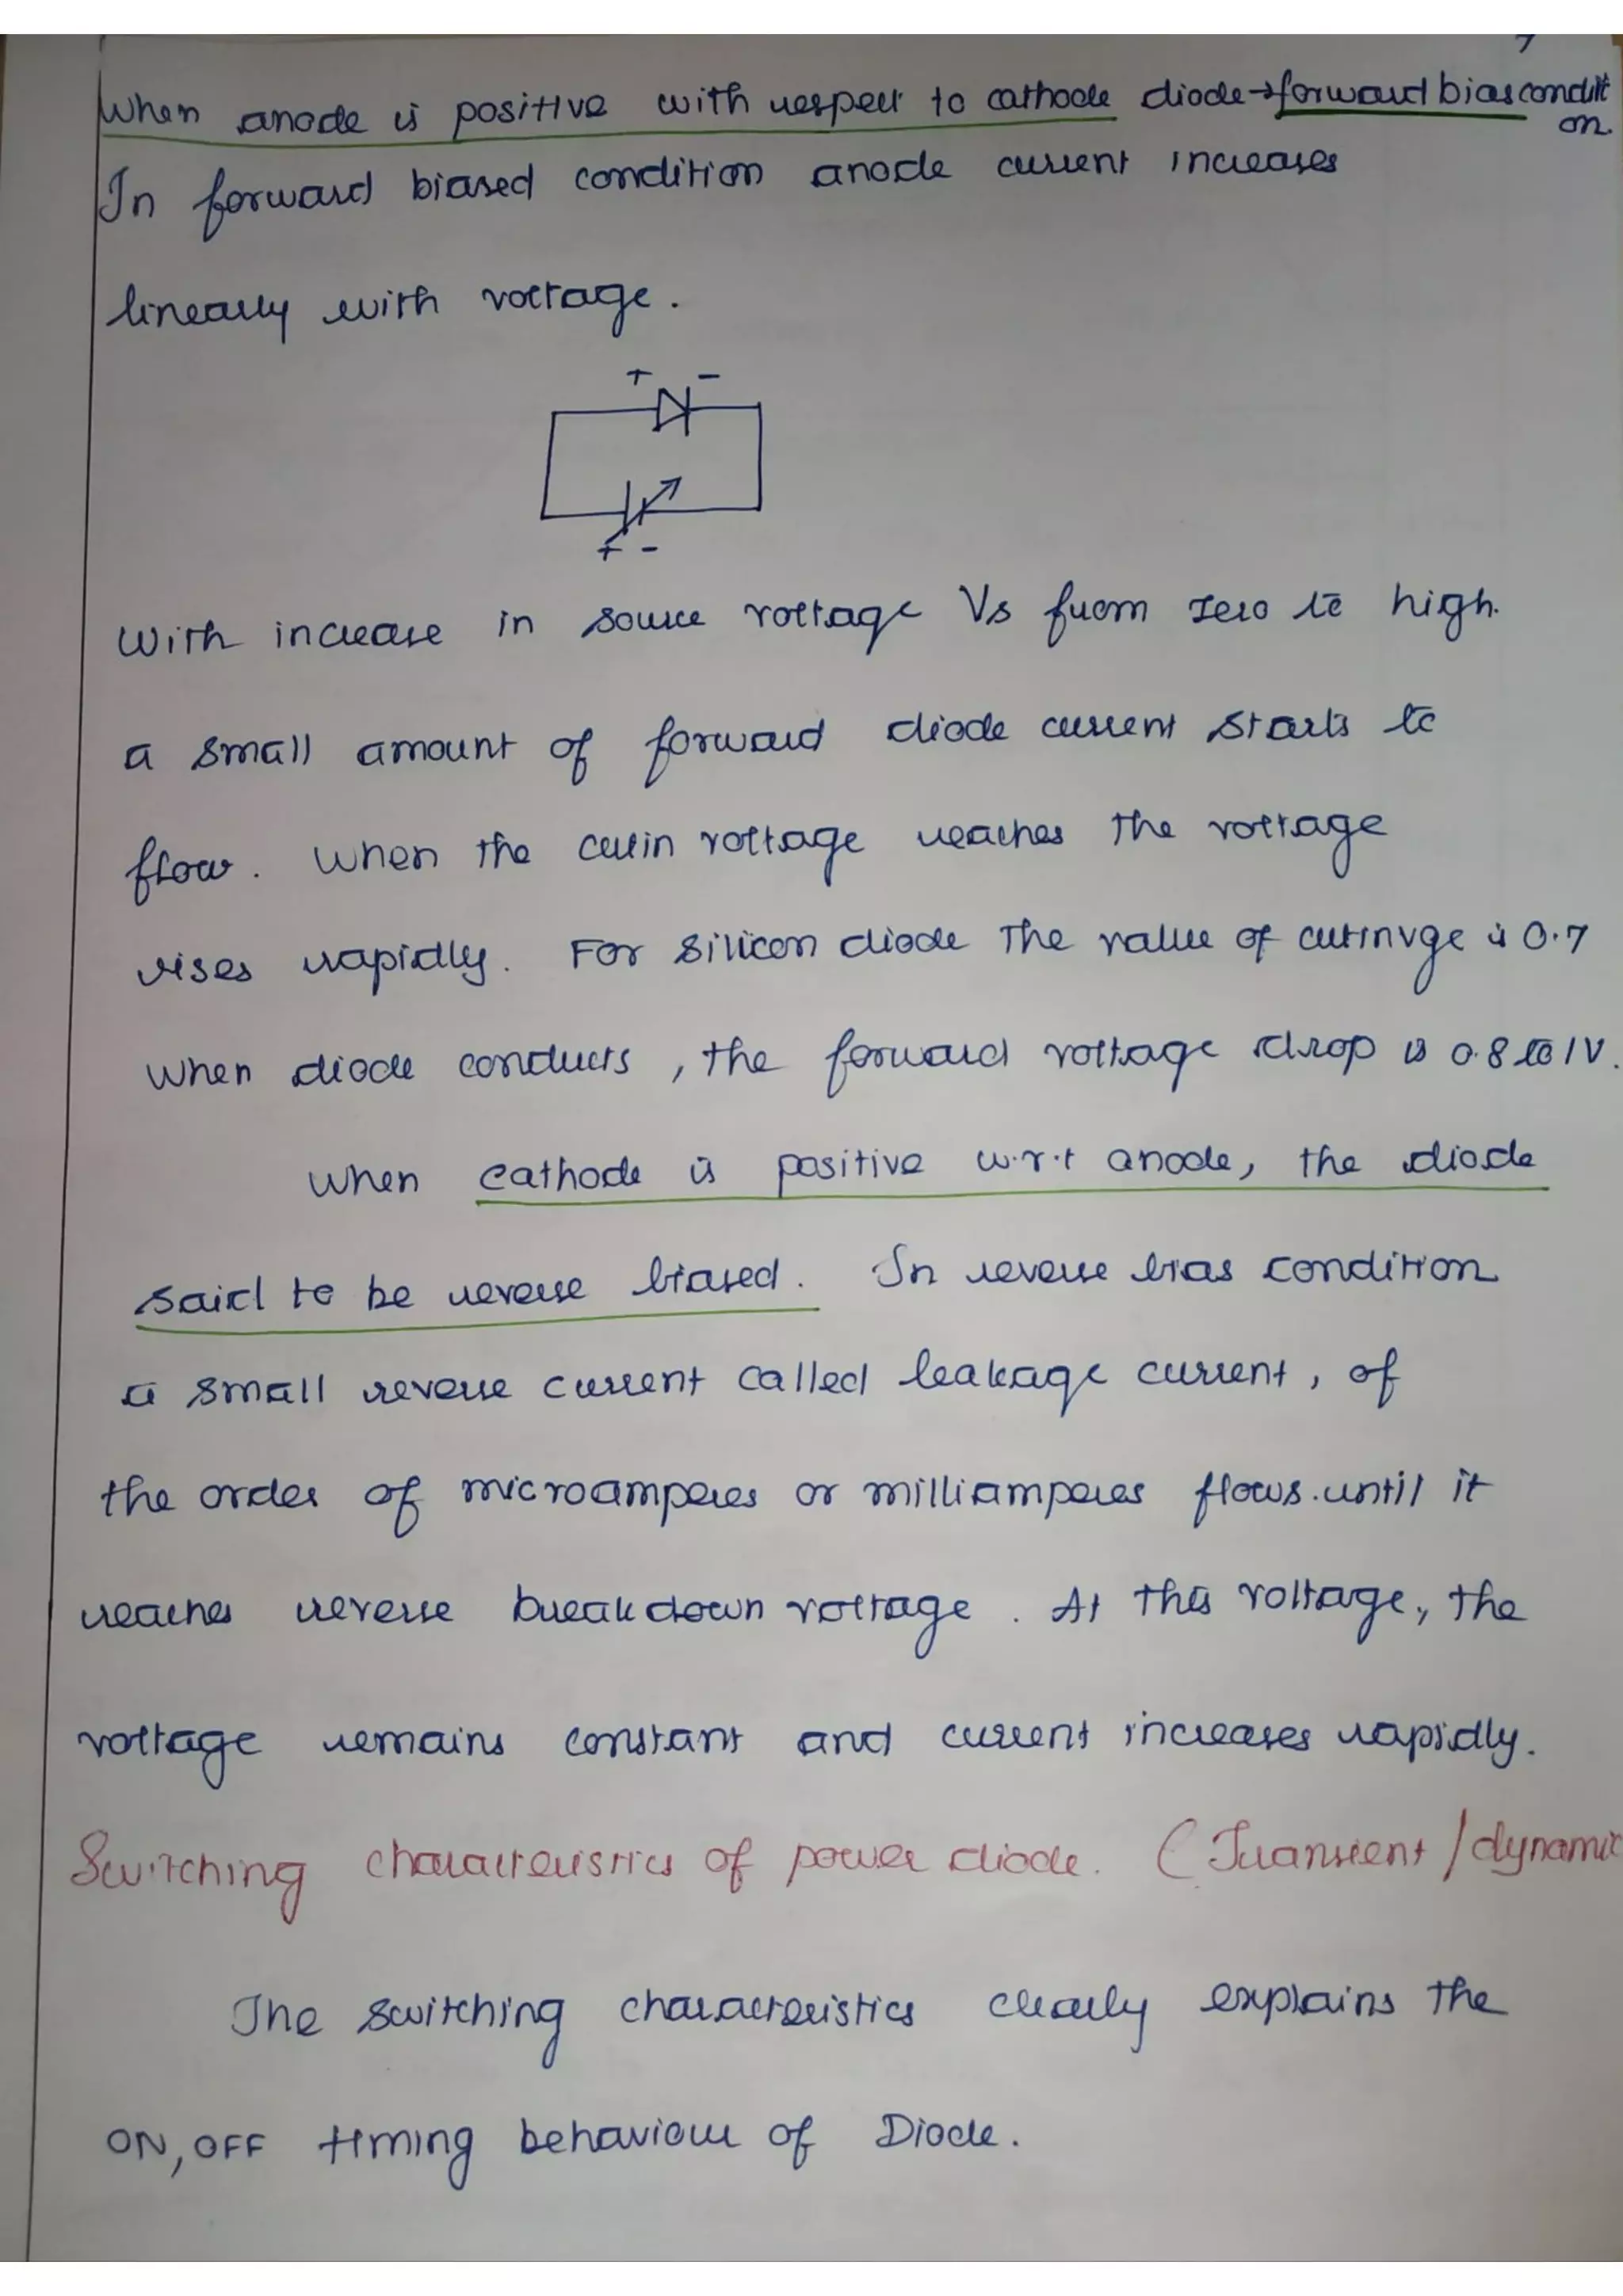 7
When anode is positive with respect to cathode diode→forward bias conditi
on.
In forward biased condition anode current increases
linearly with voltage.
+ -
+ -
With increase in source voltage Vs from zero to high.
a small amount of forward diode current starts to
flow. When the cutin voltage reaches the voltage
rises rapidly. For silicon diode the value of cutinvge is 0.7
When diode conducts, the forward voltage drop is 0.8 to 1V.
When cathode is positive w.r.t anode, the diode
said to be reverse biased. In reverse bias condition
a small reverse current called leakage current, of
the order of microamperes or milliamperes flows.until it
reaches reverse breakdown voltage. At this voltage, the
voltage remains constant and current increases rapidly.
Switching characteristics of power diode. (Transient/dynamic
The switching characteristics clearly explains the
ON, OFF timing behaviour of Diode.